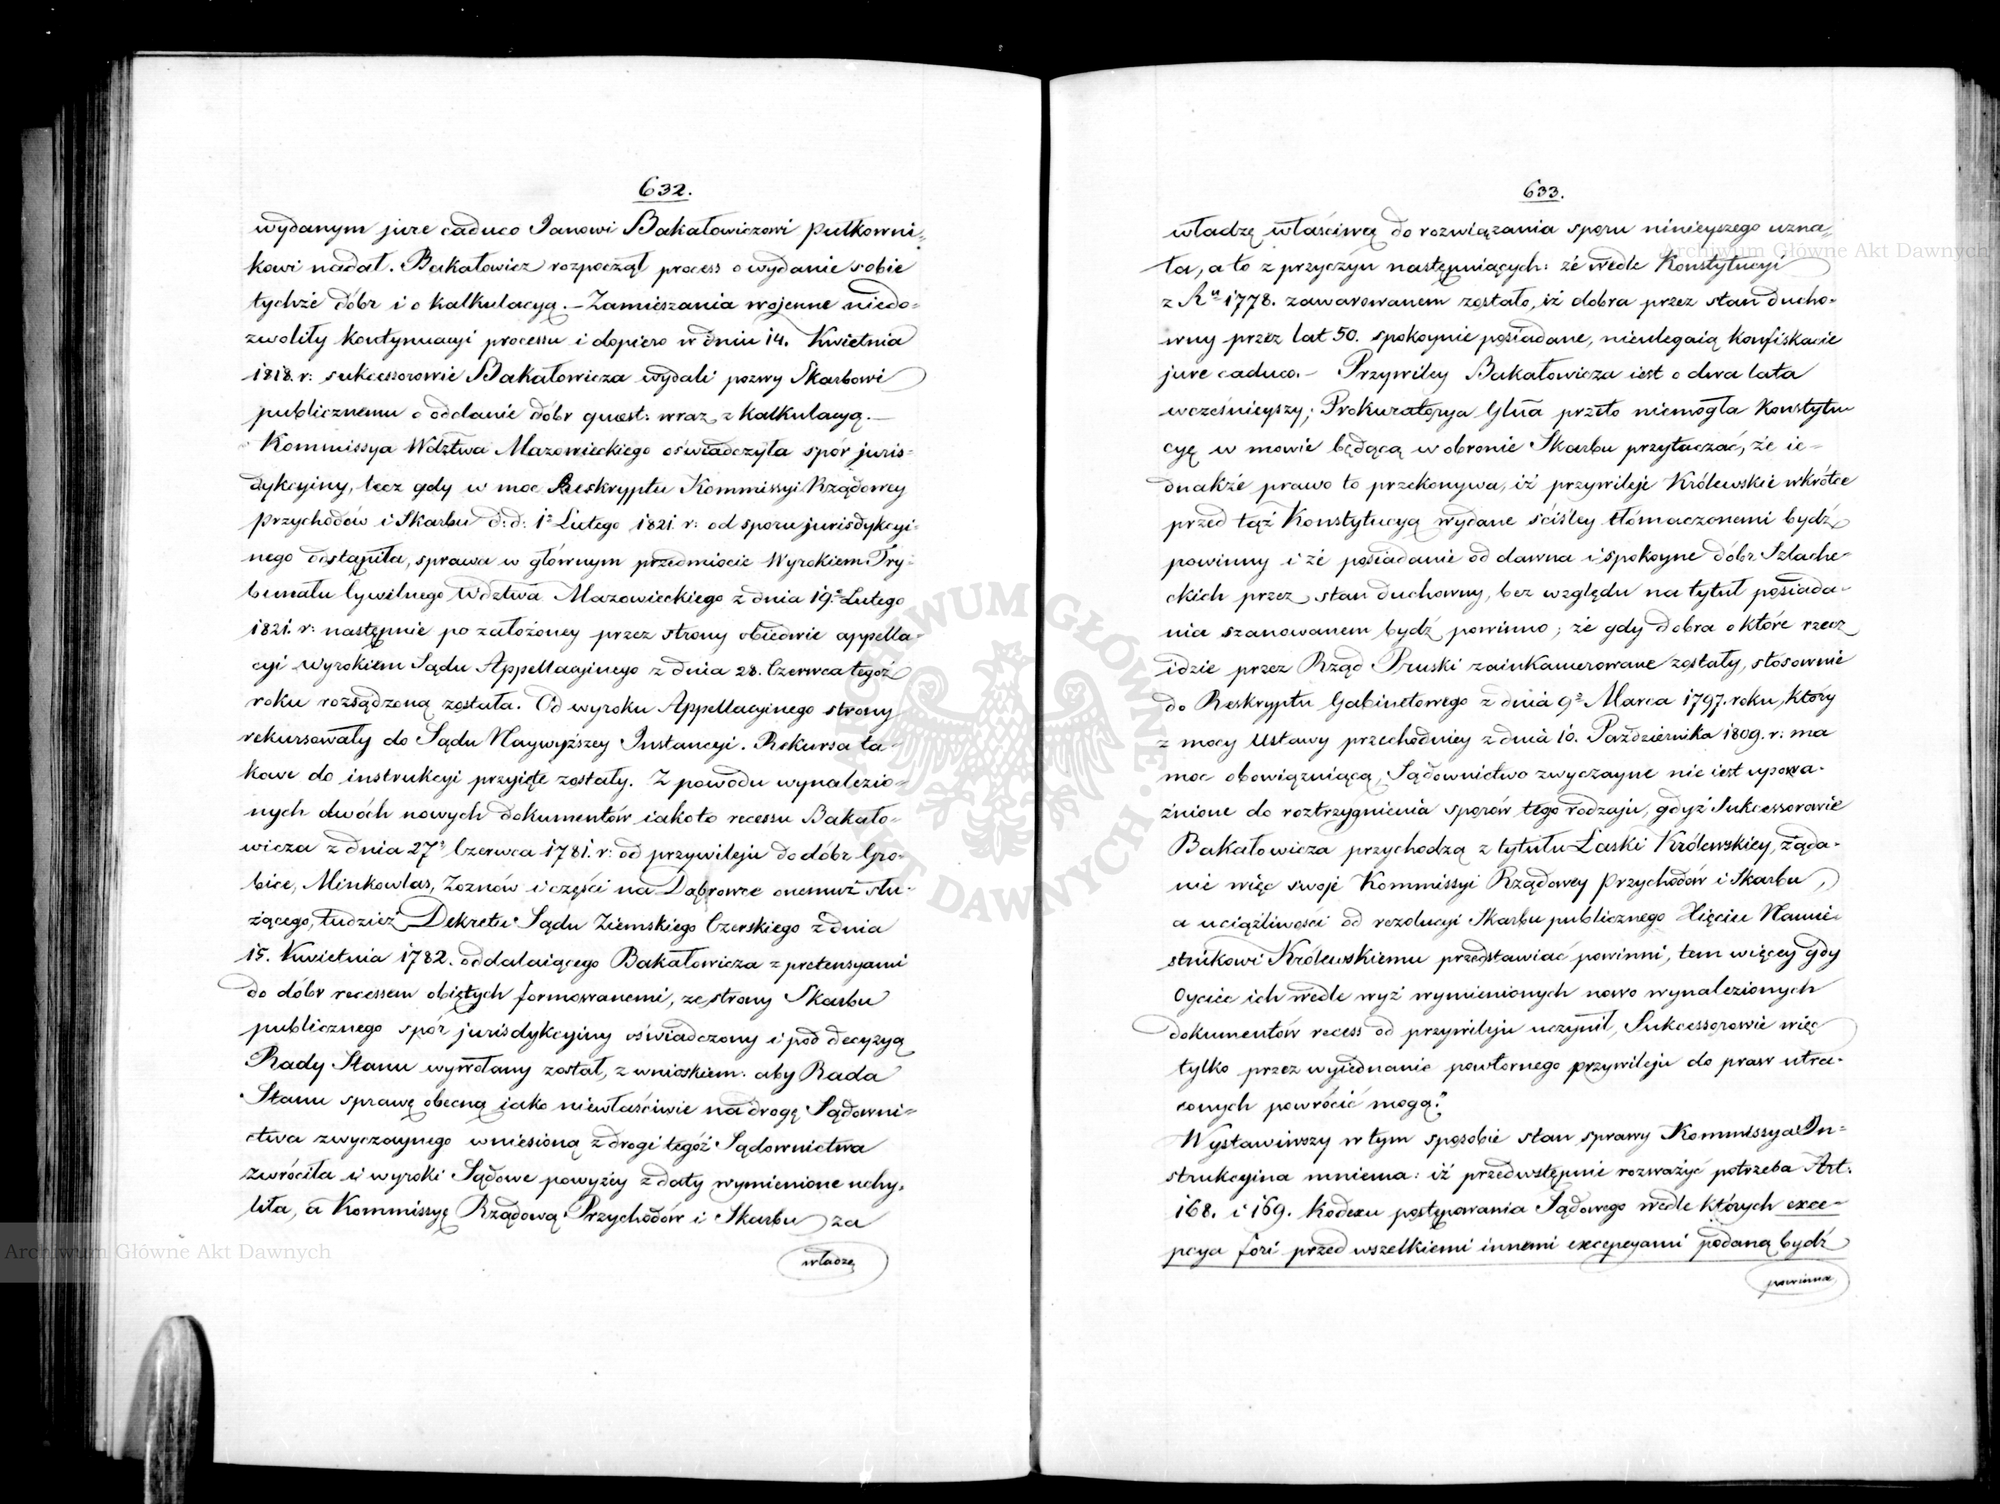 632.
wydanym jure caduco Janowi Bakałowiczowi pułkowni-
kowi nadał. Bakałowicz rozpoczął process o wydanie sobie
tychże dóbr i o kalkulacyą. — Zamieszania wojenne niedo-
zwoliły kontynuacyi processu i dopiero w dniu 14. Kwietnia
1818. r: sukcessorowie Bakałowicza wydali pozwy Skarbowi
publicznemu o oddanie dóbr quaest: wraz z kalkulacyą. —
Kommissya Wdztwa Mazowieckiego oświadczyła spór juris-
dykcyiny, lecz gdy w moc Reskryptu Kommissyi Rządowey
Przychodów i Skarbu d: d: 1o Lutego 1821. r: od sporu jurisdykcyi-
nego odstąpiła, sprawa w głównym przedmiocie Wyrokiem Try-
bunału Cywilnego Wdztwa Mazowieckiego z dnia 19o Lutego
1821. r: następnie po założoney przez strony obiedwie appella-
cyi Wyrokiem Sądu Appellacyinego z dnia 28. Czerwca tegoż
roku rozsądzoną została. Od wyroku Appellacyinego strony
rekursowały do Sądu Naywyższey Instancyi. Rekursa ta-
kowe do instrukcyi przyięte zostały. Z powodu wynalezio-
nych dwóch nowych dokumentów iakoto recessu Bakało-
wicza z dnia 27o Czerwca 1781. r: od przywileju do dóbr Gro-
bice, Minkowlas, Zoznów i części na Dąbrowce onemuż słu-
żącego, tudzież Dekretu Sądu Ziemskiego Czerskiego z dnia
15. Kwietnia 1782. oddalaiącego Bakałowicza z pretensyami
do dóbr recessem obiętych formowanemi, ze strony Skarbu
publicznego spór jurisdykcyiny oświadczony i pod decyzyą
Rady Stanu wywołany został, z wnioskiem: aby Rada
Stanu sprawę obecną iako niewłaściwie na drogę Sądowni-
ctwa zwyczaynego wniesioną z drogi tegóż Sądownictwa
zwróciła i wyroki Sądowe powyżey z daty wymienione uchy-
liła, a Kommissyę Rządową Przychodów i Skarbu za
władzę
633.
władzę właściwą do rozwiązania sporu ninieyszego uzna-
ła, a to z przyczyn następuiących: że wedle Konstytucyi
z Ru 1778. zawarowanem zostało, iż dobra przez stan ducho-
wny przez lat 50. spokoynie posiadane, nieulegaią Konfiskacie
jure caduco. — Przywiley Bakałowicza iest o dwa lata
wcześnieyszy; Prokuratorya Glna przeto niemogła Konstytu
cyę w mowie będącą w obronie Skarbu przytaczać, że ie-
dnakże prawo to przekonywa, iż przywileje Królewskie wkrótce
przed tąż Konstytucyą wydane ściśley tłómaczonemi bydź
powinny i że posiadanie od dawna i spokoyne dóbr Szlache-
ckich przez stan duchowny, bez względu na tytuł posiada-
nia szanowanem bydź powinno; że gdy dobra o które rzecz
idzie przez Rząd Pruski zainkamerowane zostały, stosownie
do Reskryptu Gabinetowego z dnia 9o Marca 1797. roku, który
z mocy Ustawy przechodniey z dnia 10. Października 1809. r: ma
moc obowiązuiącą, Sądownictwo zwyczayne nie iest upowa-
żnione do roztrzygnienia sporów tego rodzaju, gdyż Sukcessorowie
Bakałowicza przychodzą z tytułu Łaski Królewskiey, żąda-
nie więc swoje Kommissyi Rządowey Przychodów i Skarbu,
a uciążliwości od rezolucyi Skarbu publicznego Xięciu Namie-
stnikowi Królewskiemu przedstawiać powinni, tem więcey gdy
Oyciec ich wedle wyż wymienionych nowo wynalezionych
dokumentów recess od przywileju uczynił, Sukcessorowie więc
tylko przez wyiednanie powtórnego przywileju do praw utra-
conych powrócić mogą."
Wystawiwszy w tym sposobie stan sprawy Kommissya In-
strukcyina mniema: iż przedwstępnie rozważyć potrzeba Art.
168. i 169. Kodexu postępowania Sądowego wedle których exce-
pcya fori przed wszelkiemi innemi excepcyami podaną bydź
powinna
Archiwum Główne Akt Dawnych
Archiwum Główne Akt Dawnych
ARCHIWUM GŁÓWNE AKT DAWNYCH